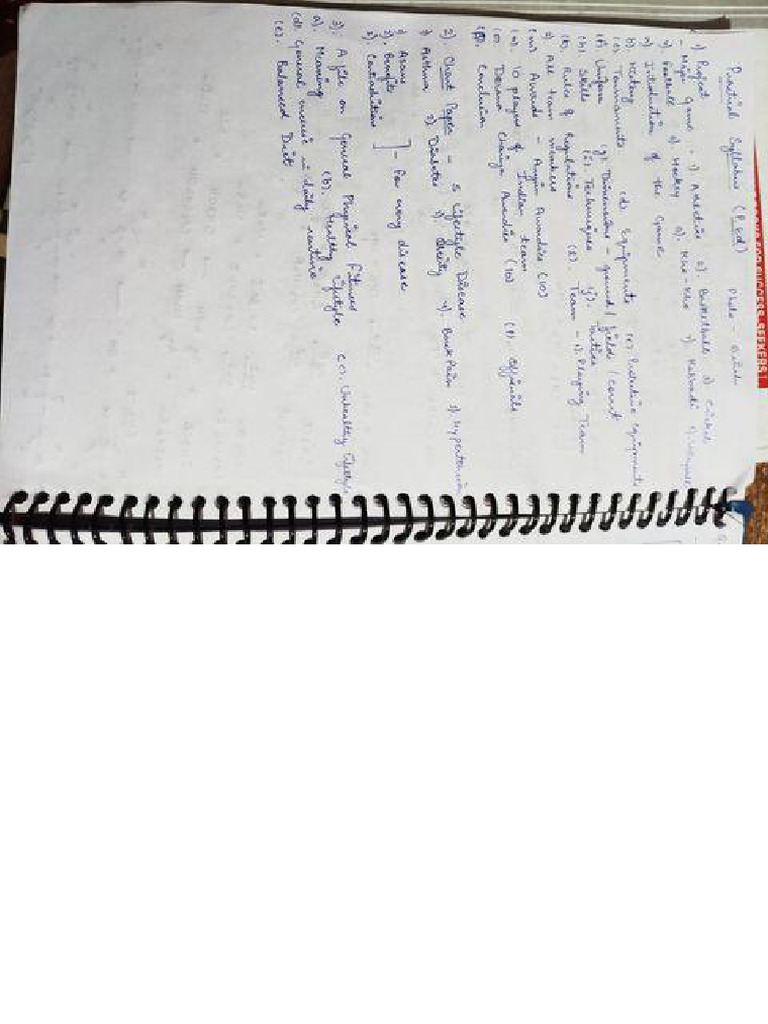 Practical Syllabus (P.Ed)
1) Project
- Major Game - 1) Athletics 2) Basketball 3) Cricket
4) Football 5) Hockey 6) Kho-Kho 7) Kabaddi
a) Introduction of the Game
b) History
(c) Tournaments (d) Equipments (e) Protective Equipments
(f) Uniform g) Dimensions - ground / field / court
(h) Skills (i) Techniques j) Duties
(k) Rules & Regulations (l) Team - 1) Playing Team
2) All team members
(m) Awards - Arjun Awardies (10)
(n) 10 players of Indian team
(o) Dronacharya Awardies (10) (p) officials
Conclusion
2) Chart Paper - 5 Lifestyle Disease
1) Asthma 2) Diabetes 3) Obesity 4) Back Pain 5) Hypertension
1) Asans
2) Benefits ] - For every disease
3)
3) A file on General Physical Fitness
a) Meaning (b) Healthy lifestyle (c) Unhealthy lifestyle
(d) General exercise in daily routine
(e). Balanced Diet
FOR SUCCESS-SEEKERS